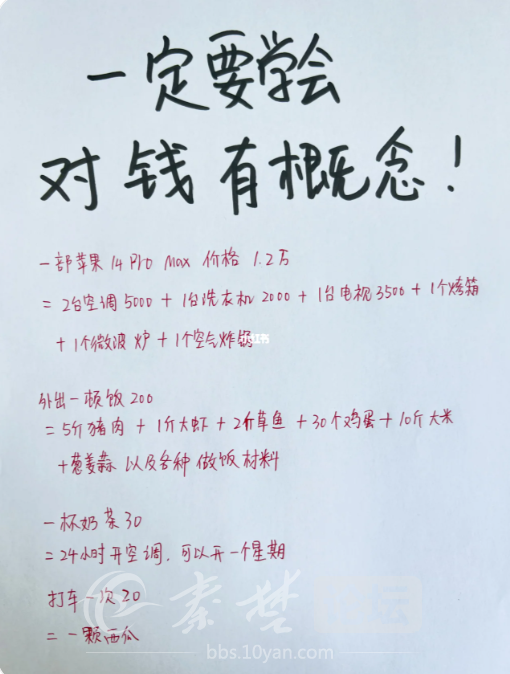 一定要学会
对钱有概念！
一部苹果14 Pro Max 价格 1.2万
=2台空调5000+1台洗衣机2000+1台电视3500+1个烤箱
+1个微波炉+1个空气炸锅
小红书
外出一顿饭200
=5斤猪肉+1斤大虾+2斤草鱼+30个鸡蛋+10斤大米
+葱姜蒜以及各种做饭材料
一杯奶茶30
=24小时开空调，可以开一个星期
打车一次20
=一颗西瓜
秦楚论坛
bbs.10yan.com